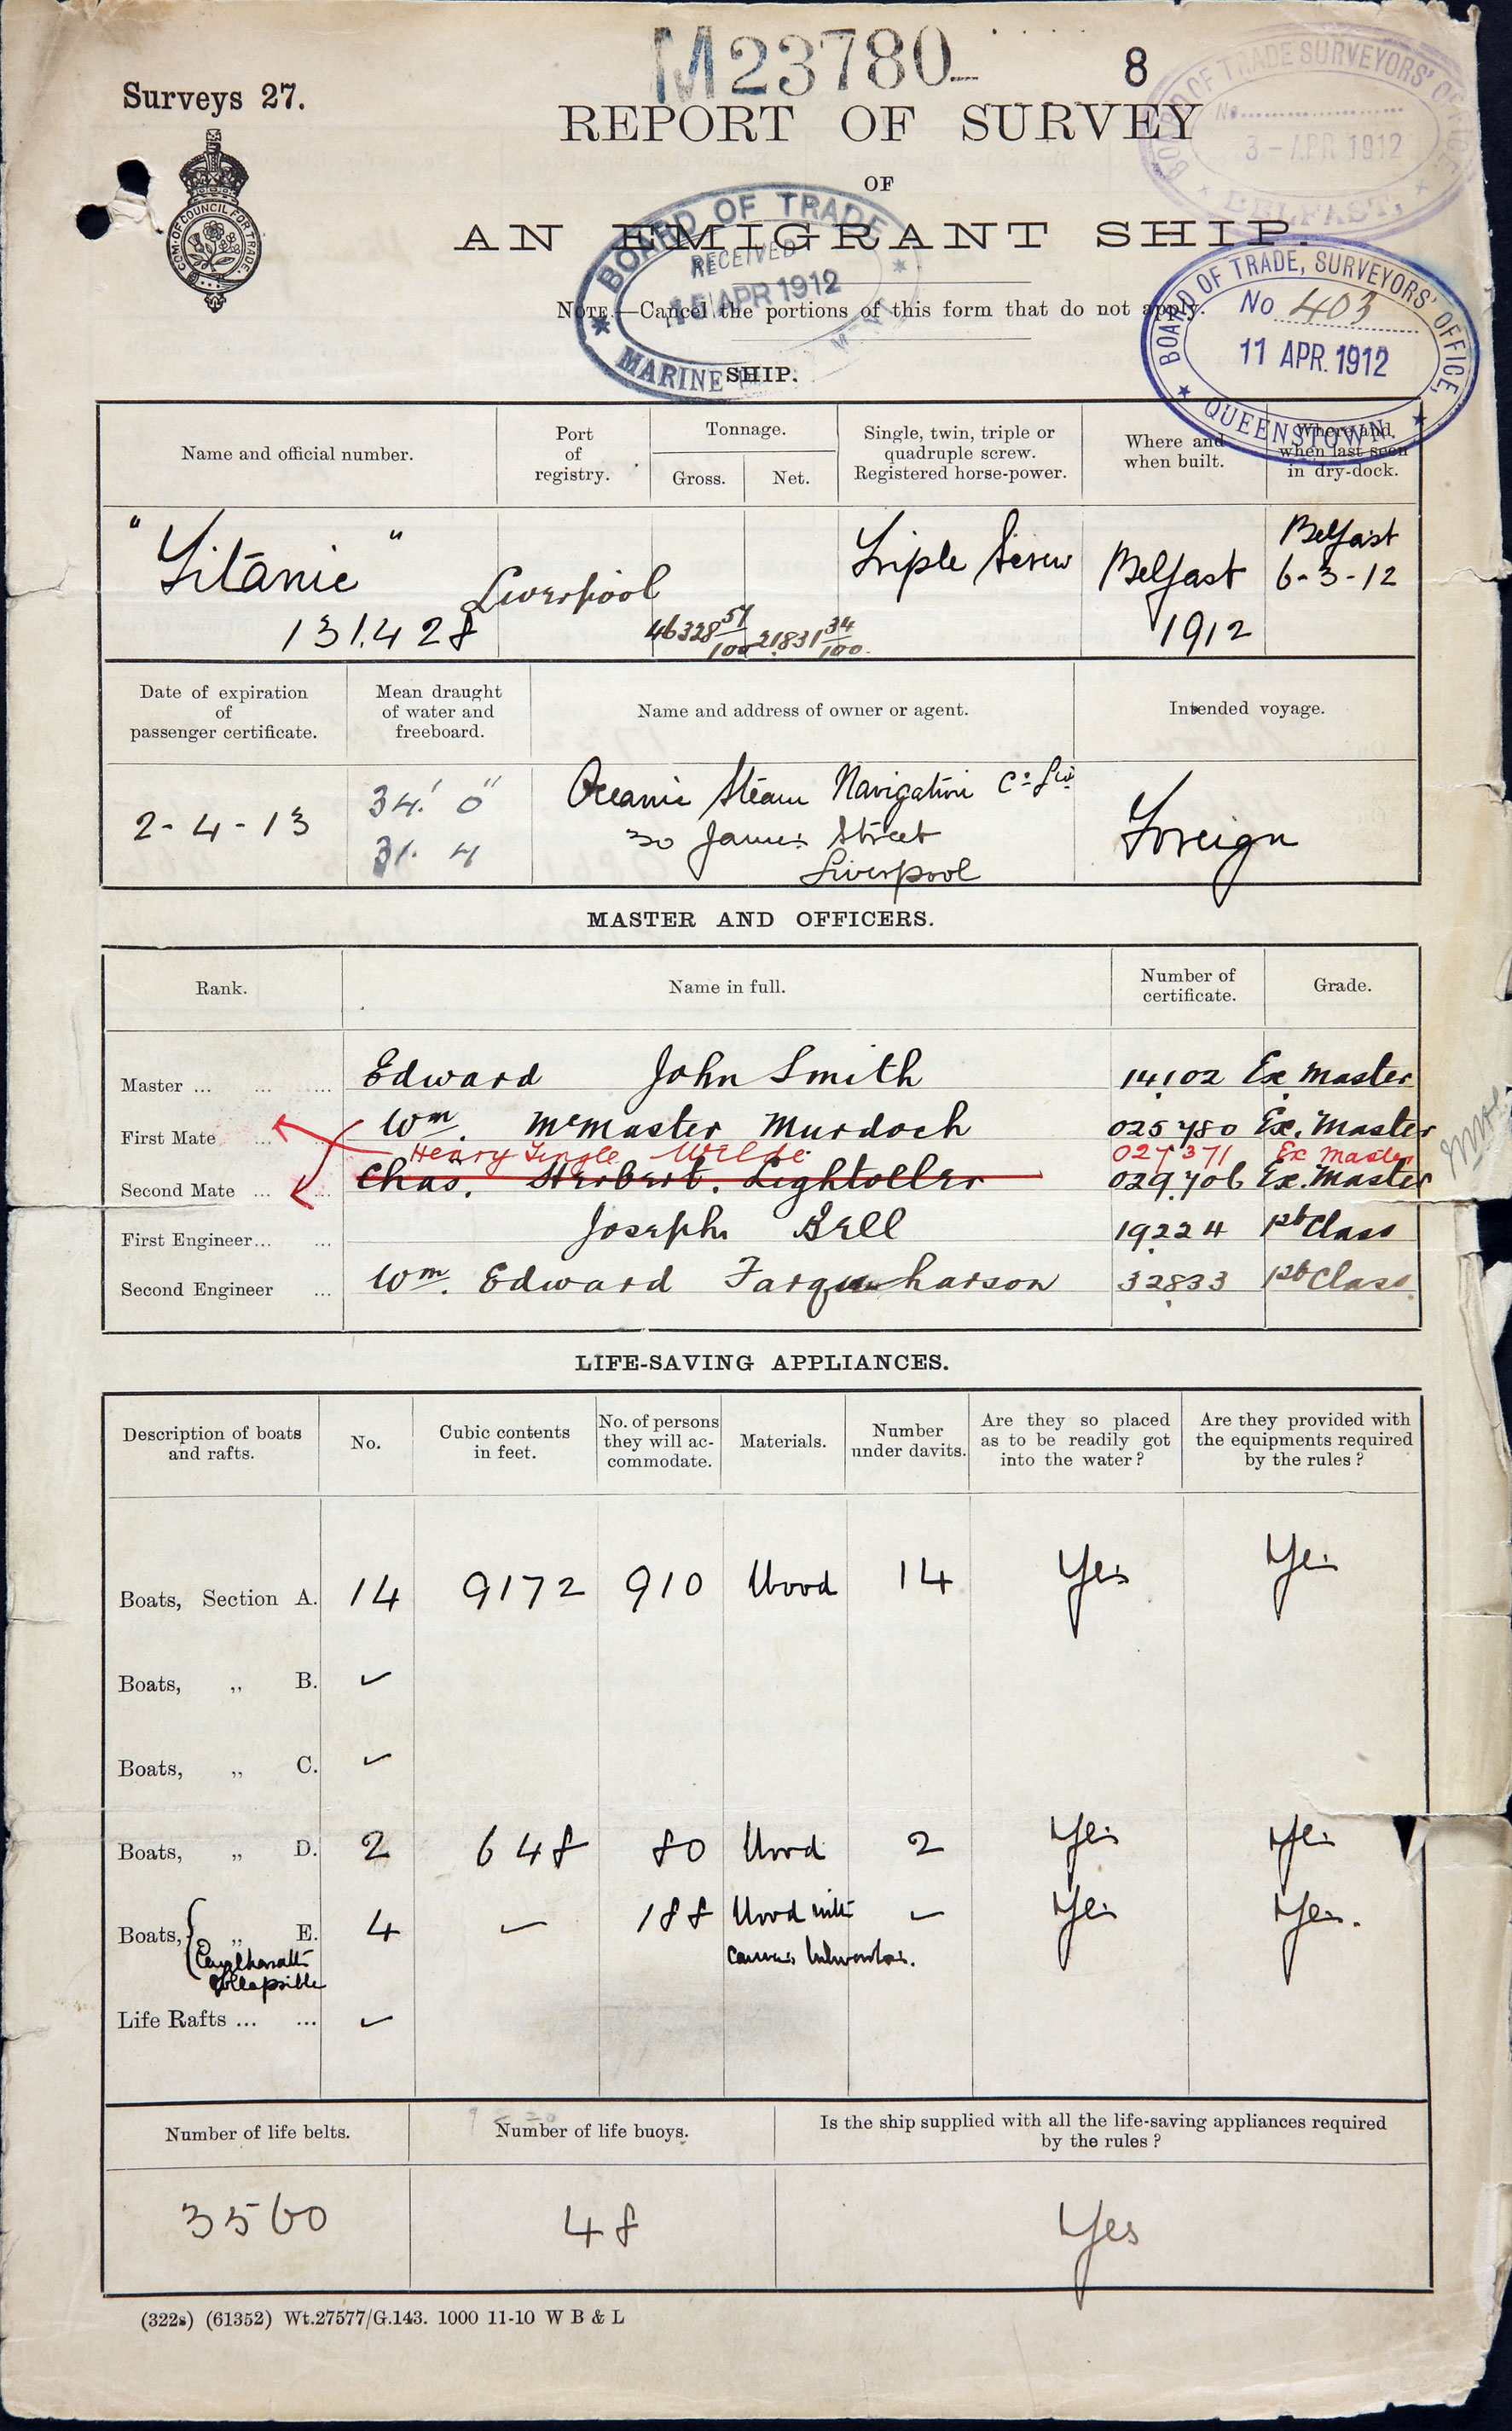 M23780
8
Surveys 27.
REPORT OF SURVEY
OF
AN EMIGRANT SHIP.
BOARD OF TRADE SURVEYORS' OFFICE
No
3 - APR 1912
BELFAST.
COM. OF COUNCIL FOR TRADE.
BOARD OF TRADE
RECEIVED
15 APR 1912
MARINE
NOTE.—Cancel the portions of this form that do not apply.
BOARD OF TRADE, SURVEYORS' OFFICE,
No 403
11 APR. 1912
QUEENSTOWN.
SHIP.
Name and official number.
Port of registry.
Tonnage.
Gross.
Net.
Single, twin, triple or quadruple screw. Registered horse-power.
Where and when built.
Where and when last seen in dry-dock.
"Titanic"
131.428
Liverpool
46328 57/100
21831 34/100
Triple Screw
Belfast
1912
Belfast
6-3-12
Date of expiration of passenger certificate.
Mean draught of water and freeboard.
Name and address of owner or agent.
Intended voyage.
2-4-13
34' 0"
31. 4
Oceanic Steam Navigation Co. Ltd
30 James Street
Liverpool
Foreign
MASTER AND OFFICERS.
Rank.
Name in full.
Number of certificate.
Grade.
Master ... ... ... Edward John Smith 14102 Ex Master
First Mate ... ... Wm. McMaster Murdoch 025780 Ex. Master
Henry Tingle Wilde. 027371 Ex Master
Second Mate ... ... Chas. Herbert. Lightoller 029706 Ex. Master
First Engineer... ... Joseph Bell 19224 1st Class
Second Engineer ... Wm. Edward Farquharson 32833 1st Class
LIFE-SAVING APPLIANCES.
Description of boats and rafts.
No.
Cubic contents in feet.
No. of persons they will accommodate.
Materials.
Number under davits.
Are they so placed as to be readily got into the water?
Are they provided with the equipments required by the rules?
Boats, Section A. 14 9172 910 Wood 14 Yes Yes
Boats, „ B. ✓
Boats, „ C. ✓
Boats, „ D. 2 648 80 Wood 2 Yes Yes
Boats, „ E. 4 – 188 Wood with – Yes Yes.
Engelhardt
Collapsible
canvas bulwarks.
Life Rafts ... ... ✓
Number of life belts.
Number of life buoys.
Is the ship supplied with all the life-saving appliances required by the rules?
3560
48
Yes
(322s) (61352) Wt.27577/G.143. 1000 11-10 W B & L